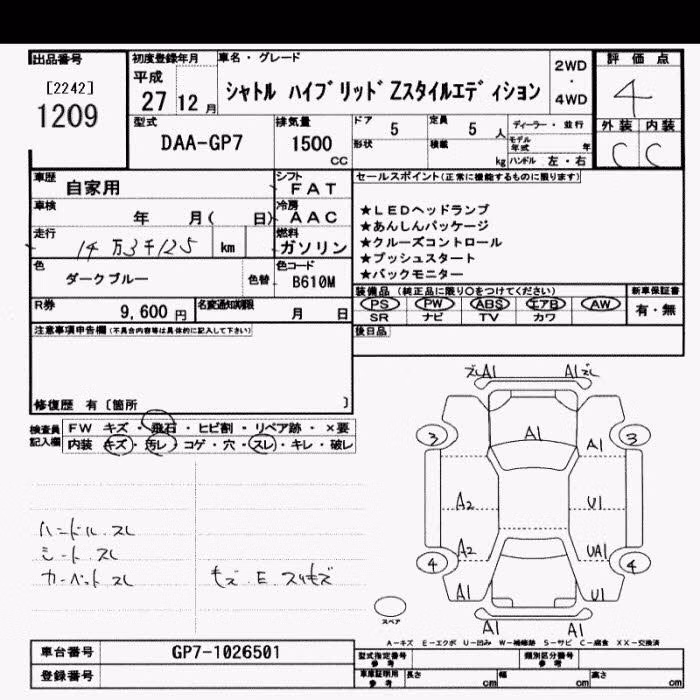 出品番号
[2242]
1209
初度登録年月
平成
27 12 月
車名・グレード
シャトル ハイブリッドZスタイルエディション
2WD
・
4WD
評価点
4
外装 内装
C C
型式
DAA-GP7
排気量
1500
CC
ドア
5
形状
定員
5 人
積載
kg
ディーラー・並行
モデル年式 年
ハンドル 左・右
車歴
自家用
シフト
FAT
車検
年 月( 日)
冷房
AAC
走行
14万3千125 km
燃料
ガソリン
色
ダークブルー
色替
色コード
B610M
R券
9,600 円
名変通知期限
月 日
セールスポイント(正常に機能するものに限ります)
★LEDヘッドランプ
★あんしんパッケージ
★クルーズコントロール
★プッシュスタート
★バックモニター
装備品(純正品に限り○をつけてください)
PS PW ABS エアB AW
SR ナビ TV カワ
新車保証書
有・無
後日品
注意事項申告欄(不具合内容等は具体的に記入して下さい)
修復歴 有〔箇所 〕
検査員
記入欄
FW キズ・飛石・ヒビ割・リペア跡・×要
内装 キズ・汚レ・コゲ・穴・スレ・キレ・破レ
ハンドル.スレ
シート.スレ
カーペットスレ
モズ.E.スリキズ
ズレA1 A1ズレ
3 3
A1 A1
A2 U1
A2 UA1
4 4
A1 U1
A1 A1
スペア
A-キズ E-エクボ U-凹み W-補修跡 S-サビ C-腐食 XX-交換済
車台番号
GP7-1026501
登録番号
型式指定番号
参考
類別区分番号
参考
車庫証明用
参考
長さ cm 幅 cm 高さ cm